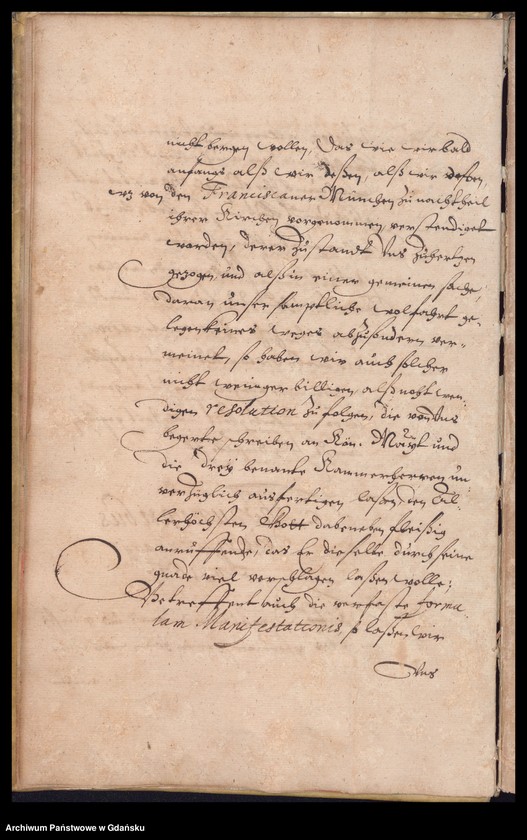 nicht bergen wollen, Das wie wir bald
anfangs alß wir deßen, alß wir
wz von den Franciscaner München zu nachtheil
ihrer Kirchen vorgenommen, verstendiget
worden, derer zustandt Uns zuhertzen
gezogen, und alß in einer gemeinen sache,
daran unser samptliche wolfahrt ge-
legen keines weges abzusondern ver-
meinet, so haben wir auch solcher
nicht weniger billigen, alß noht wen-
digen resolution zu folgen, die von Uns
begerte schreiben an Kön. Maytt und
die drey benante Kammerherren un
verzuglich ausfertigen laßen, den Al-
lerhöchsten Gott dabeneben fleißig
anruffende, das Er dieselbe durch seine
gnade viel verschlagen laßen wolle;
Betreffent auch die verfaste formu-
lam Manifestationis, so laßen wir
Uns
Archiwum Państwowe w Gdańsku